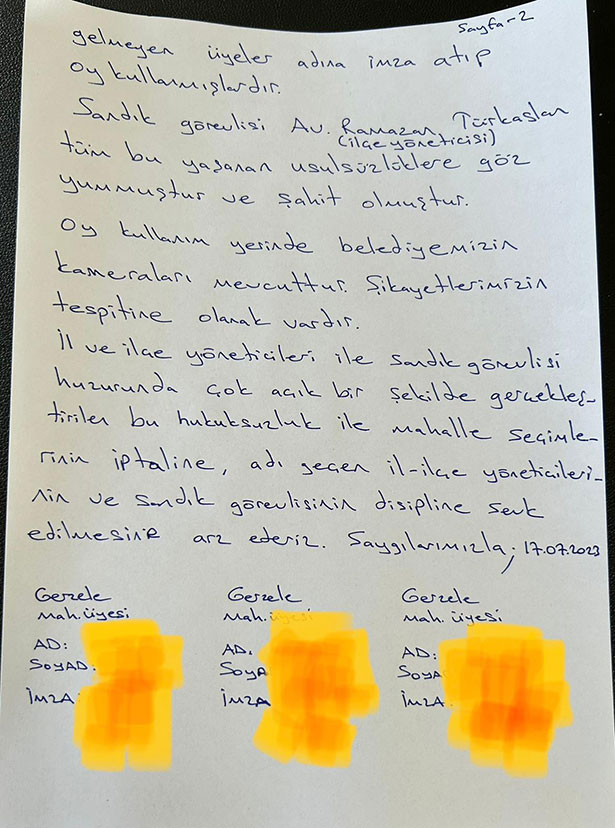 Sayfa-2
gelmeyen üyeler adına imza atıp
oy kullanmışlardır.
Sandık görevlisi Av. Ramazan Türkaslan
(ilçe yöneticisi)
tüm bu yaşanan usulsüzlüklere göz
yummuştur ve şahit olmuştur.
Oy kullanım yerinde belediyemizin
kameraları mevcuttur. Şikayetlerimizin
tespitine olanak vardır.
İl ve ilçe yöneticileri ile sandık görevlisi
huzurunda çok açık bir şekilde gerçekleş-
tirilen bu hukuksuzluk ile mahalle seçimle-
rinin iptaline, adı geçen il-ilçe yöneticileri-
nin ve sandık görevlisinin disipline sevk
edilmesine arz ederiz. Saygılarımızla, 17.07.2023
Gerzele Gerzele Gerzele
Mah. üyesi Mah. üyesi Mah. üyesi
AD: AD: AD:
SOYAD: SOYA SOYA
İMZA: İMZA İMZA